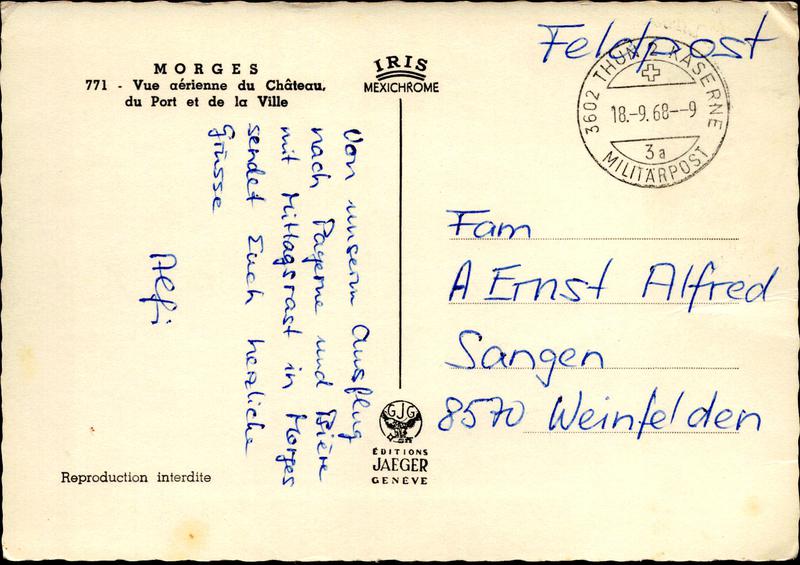 MORGES
771 - Vue aérienne du Château,
du Port et de la Ville
IRIS
MEXICHROME
Feldpost
3602 THUN 2 KASERNE
18.-9.68--9
3a
MILITÄRPOST
Von unserm Ausflug
nach Payerne und Bière
mit Mittagsrast in Morges
sendet Euch herzliche
Grüsse
Alfi
Fam
A Ernst Alfred
Sangen
8570 Weinfelden
GJG
ÉDITIONS
JAEGER
GENÈVE
Reproduction interdite